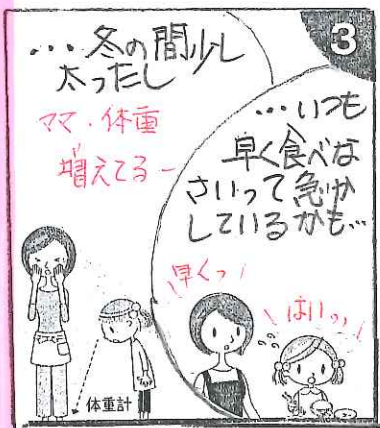 3
…冬の間少し
太ったし
ママ、体重
増えてるー
体重計
…いつも
早く食べな
さいって急か
しているかも…
早くっ!
はいっ!